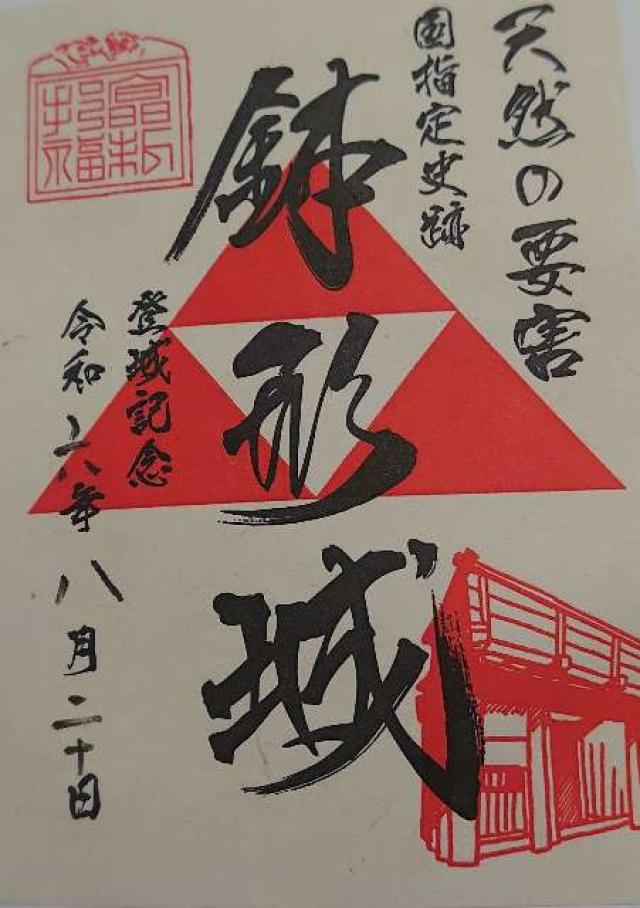 天然の要害
国指定史跡
鉢形城
登城記念
令和六年八月二十日